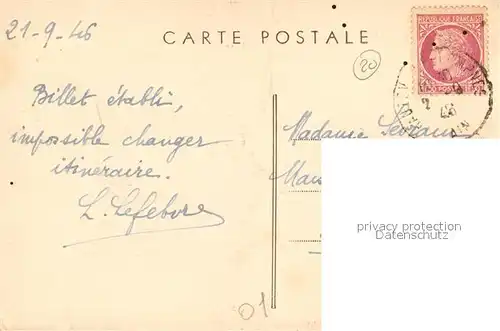 21-9-46
CARTE POSTALE
RÉPUBLIQUE FRANÇAISE
20
Billet établi,
impossible changer
itinéraire.
L. Lefebvre
Madame
privacy protection
Datenschutz
01